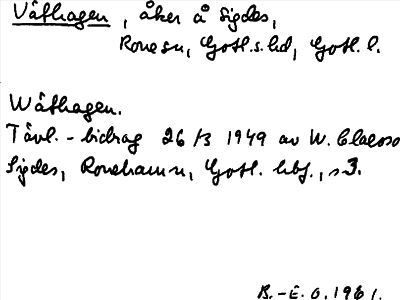 Våthagen, åker å Sigdes,
Rone sn, Gotl. s. hd, Gotl. l.
Wåthagen.
Tävl.-bidrag 26/3 1949 av W. Claeson
Sigdes, Ronehamn, Gotl. hbf., s 3.
B.-E. O. 1961.